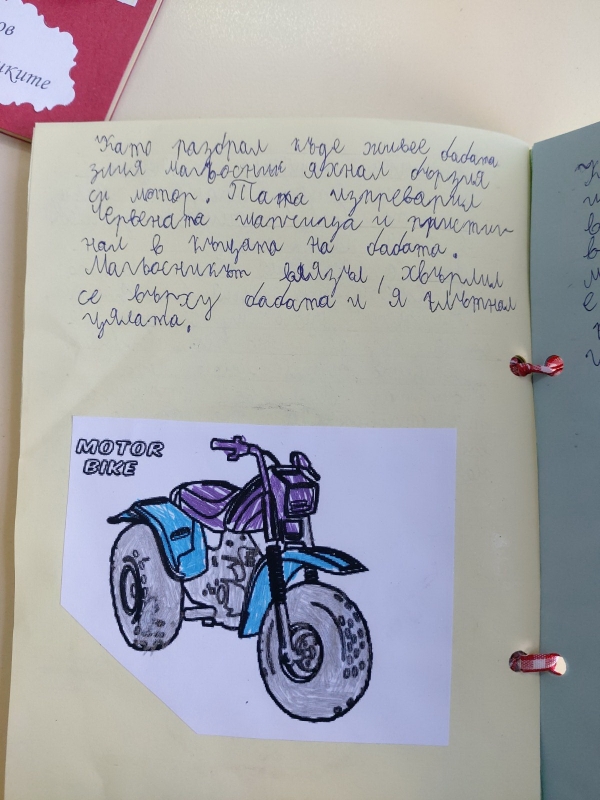 ов
иките
Като разбрал къде живее бабата
злия магьосник яхнал бързия
си мотор. Така изпреварил
Червената шапчица и пристиг
нал в къщата на бабата.
Магьосникът влязъл, хвърлил
се върху бабата и я глътнал
цялата.
MOTOR
BIKE